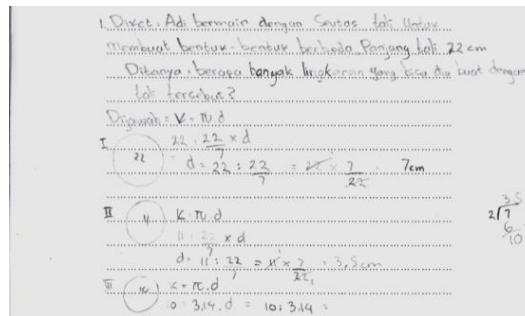 1. Diket : Adi bermain dengan Seutas tali Untuk
membuat bentuk-bentuk berbeda Panjang tali 22 cm
Ditanya : berapa banyak lingkaran yang bisa dibuat dengan
tali tersebut?
Dijawab = K = π.d
I 22 22 : 22/7 × d
d = 22 : 22/7 = 22 × 7/22 7cm
II 11 K = π.d
11 : 22/7 × d
d = 11 : 22/7 = 11 × 7/22 = 3,5 cm
3,5
2√7
6
10
III 10 K = π.d
10 : 3,14 . d = 10 : 3,14 =